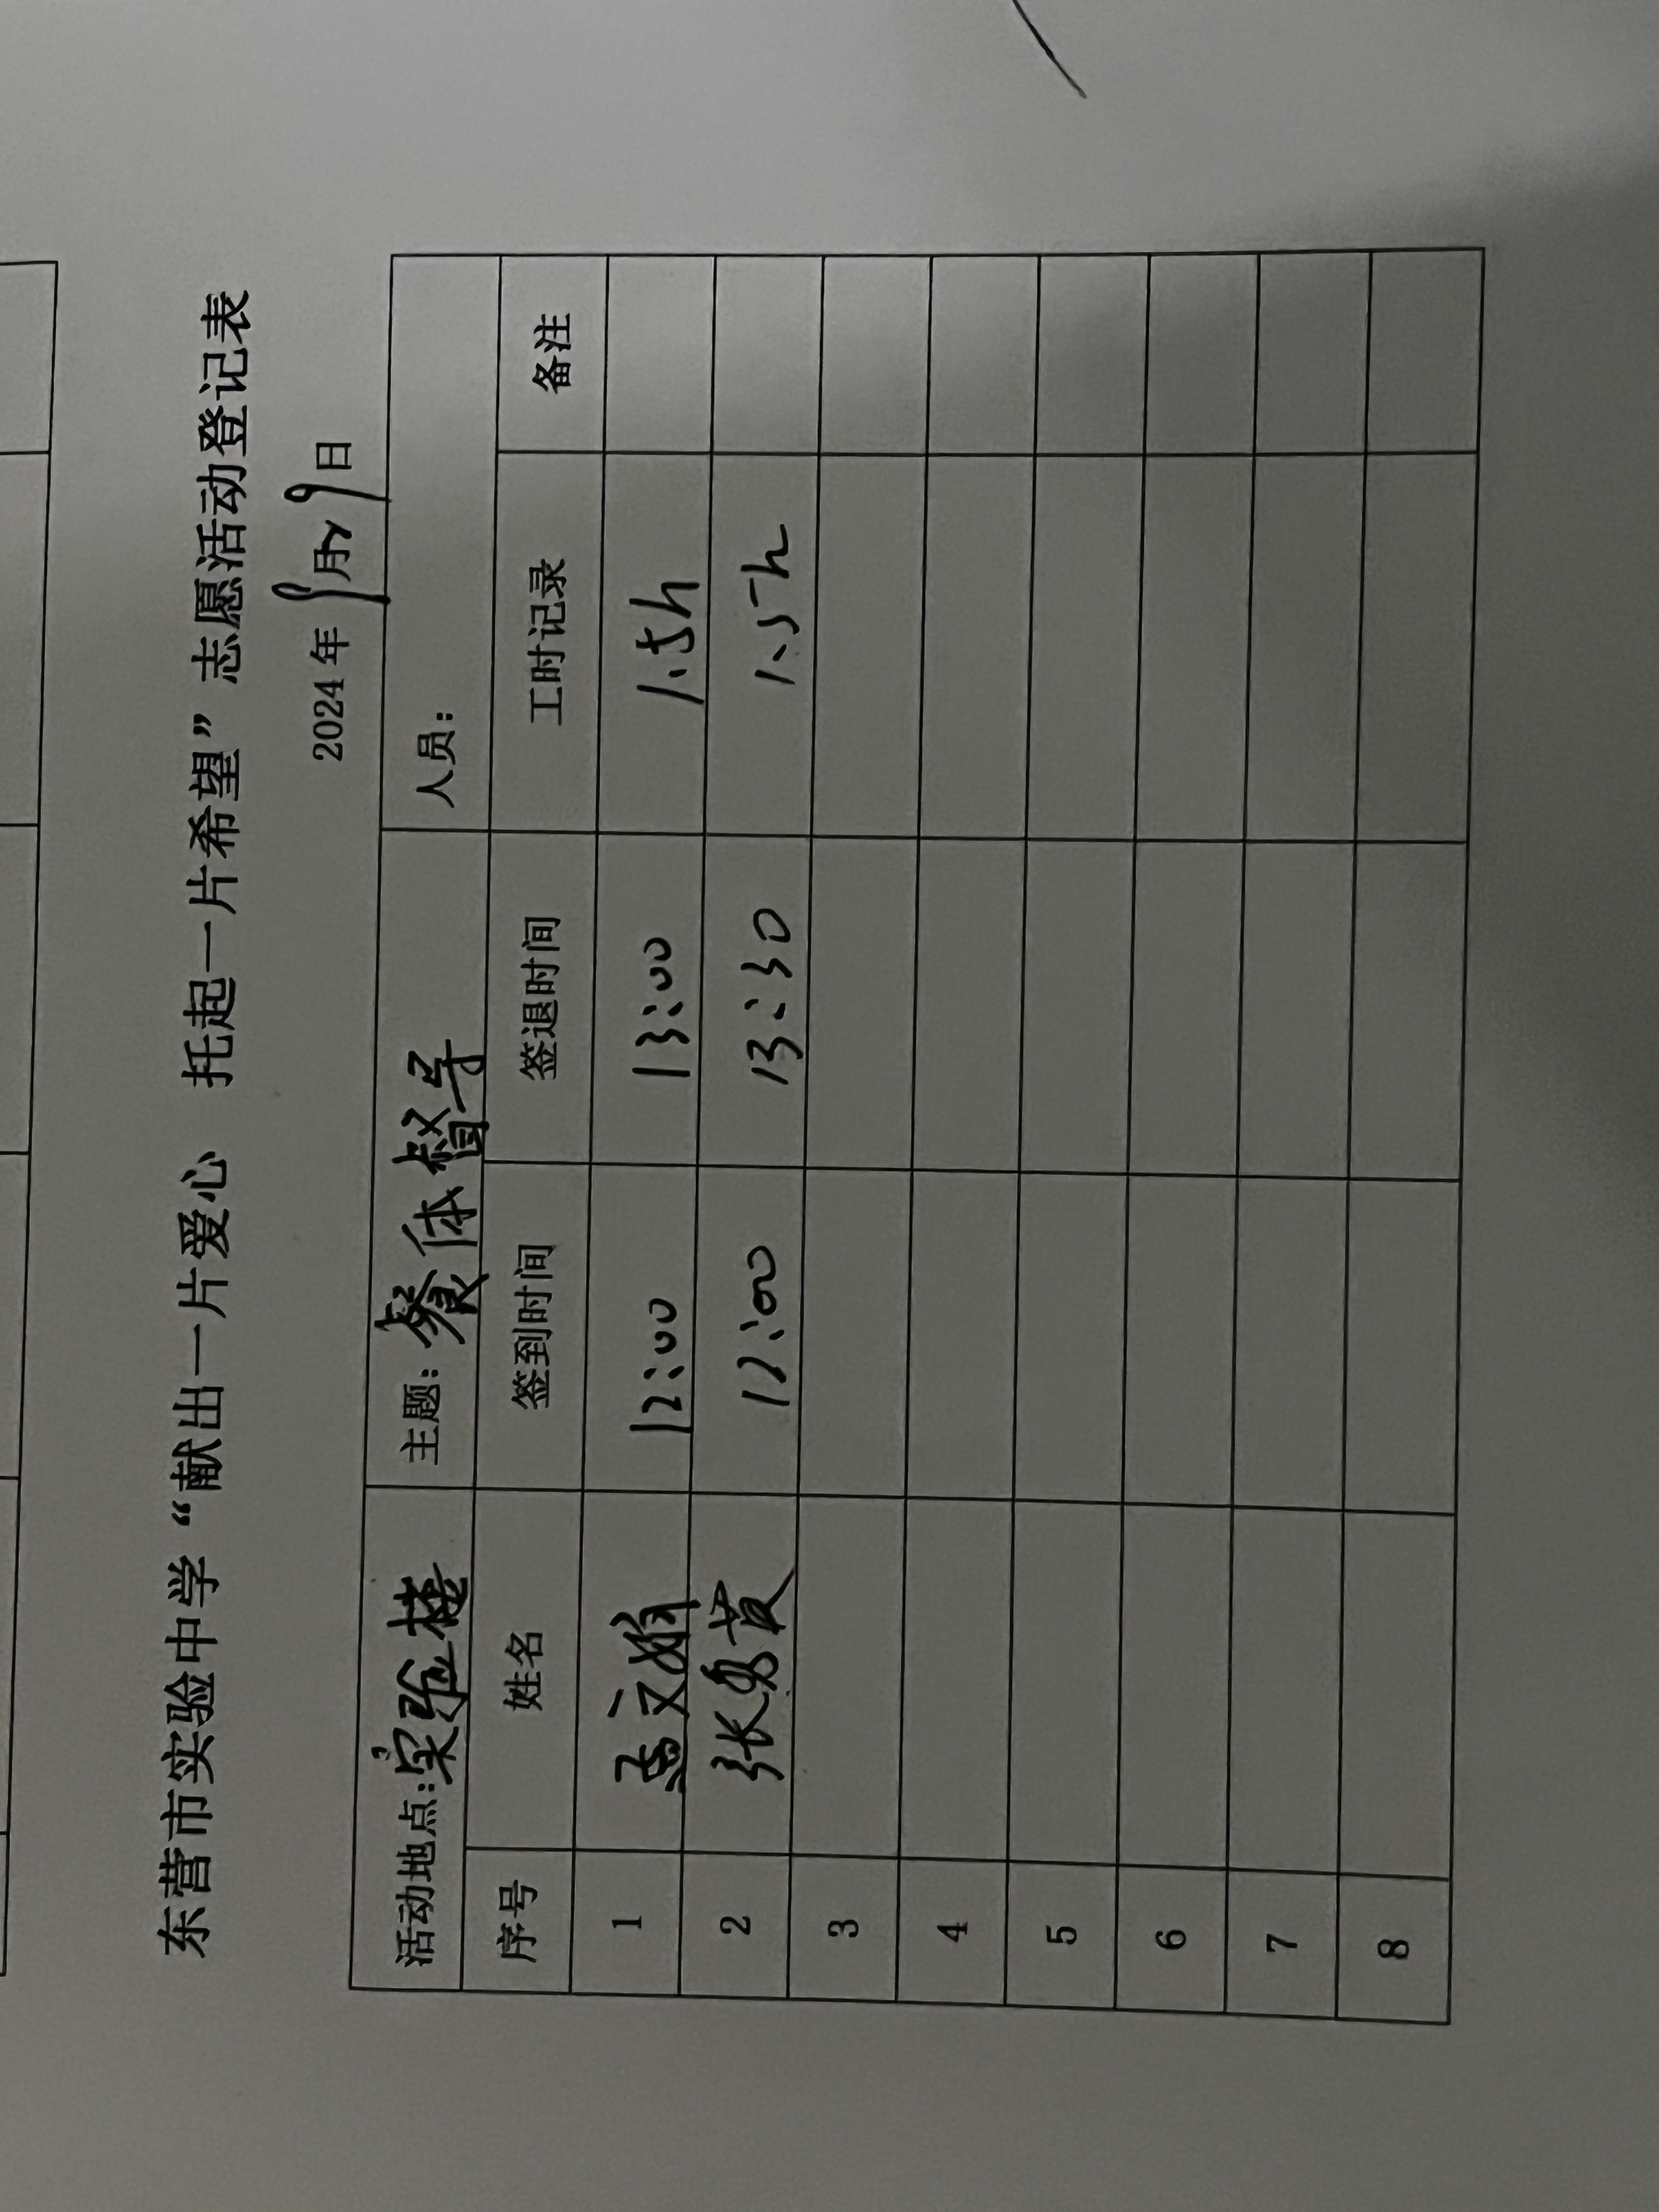 东营市实验中学“献出一片爱心 托起一片希望”志愿活动登记表
2024年9月29日
活动地点:实验楼 主题:餐体督导 人员:
序号 姓名 签到时间 签退时间 工时记录 备注
1 孟文娟 12:00 13:00 1.5h
2 张 12:00 13:30 1.5h
3
4
5
6
7
8